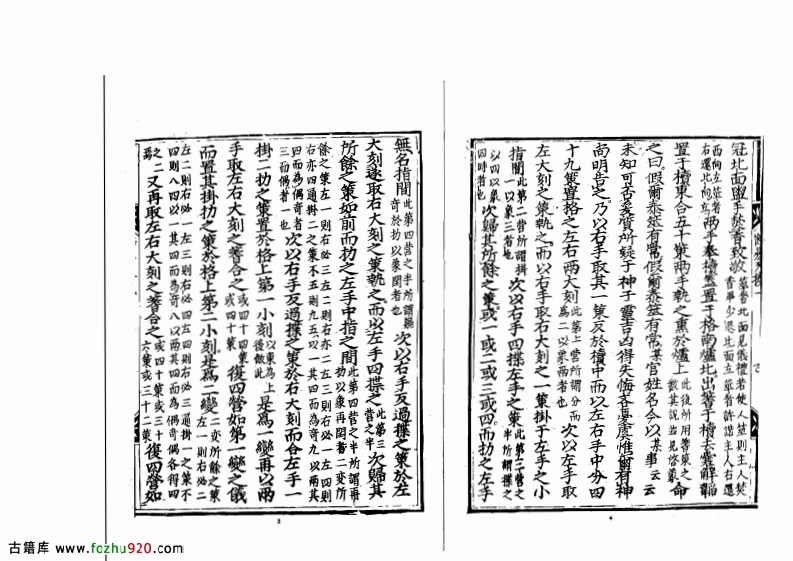 冠北面盥手焚香致敬筮者北面見儀禮若使人筮則主人焚香畢少退北面立筮者許諾主人右還
西向立筮者右還北向立兩手奉櫝蓋置于格南爐北出蓍于櫝去囊解韜
置于櫝東合五十策兩手執之熏於爐上此後所用蓍策之數其說並見啓蒙命
之曰假爾泰筮有常假爾泰筮有常某官姓名今以某事云云
未知可否爰質所疑于神于靈吉凶得失悔吝憂虞惟爾有神
尚明告之乃以右手取其一策反於櫝中而以左右手中分四
十九策置格之左右兩大刻此第一營所謂分而為二以象兩者也次以左手取
左大刻之策執之而以右手取右大刻之一策掛于左手之小
指間此第二營所謂掛一以象三者也次以右手四揲左手之策此第三營之半所謂揲之
以四以象四時者也次歸其所餘之策或一或二或三或四而扐之左手
無名指間此第四營之半所謂歸奇於扐以象閏者也次以右手反過揲之策於左
大刻遂取右大刻之策執之而以左手四揲之此第三營之半次歸其
所餘之策如前而扐之左手中指之間此第四營之半所謂再扐以象再閏者也一變所
餘之策左一則右必三左二則右亦二左三則右必一左四則右亦四通掛一之策不五則九五以一其四而為奇九以兩其
四而為偶奇者三而偶者一也次以右手反過揲之策於右大刻而合左手一
掛二扐之策置於格上第一小刻以東為上後倣此是為一變再以兩
手取左右大刻之蓍合之或四十四策或四十策復四營如第一變之儀
而置其掛扐之策於格上第二小刻是為二變二變所餘之策左一則右必二
左二則右必一左三則右必四左四則右必三通掛一之策不四則八四以一其四而為奇八以兩其四而為偶奇偶各得四
之二焉又再取左右大刻之蓍合之或四十策或三十六策或三十二策復四營如
古籍库 www.fozhu920.com